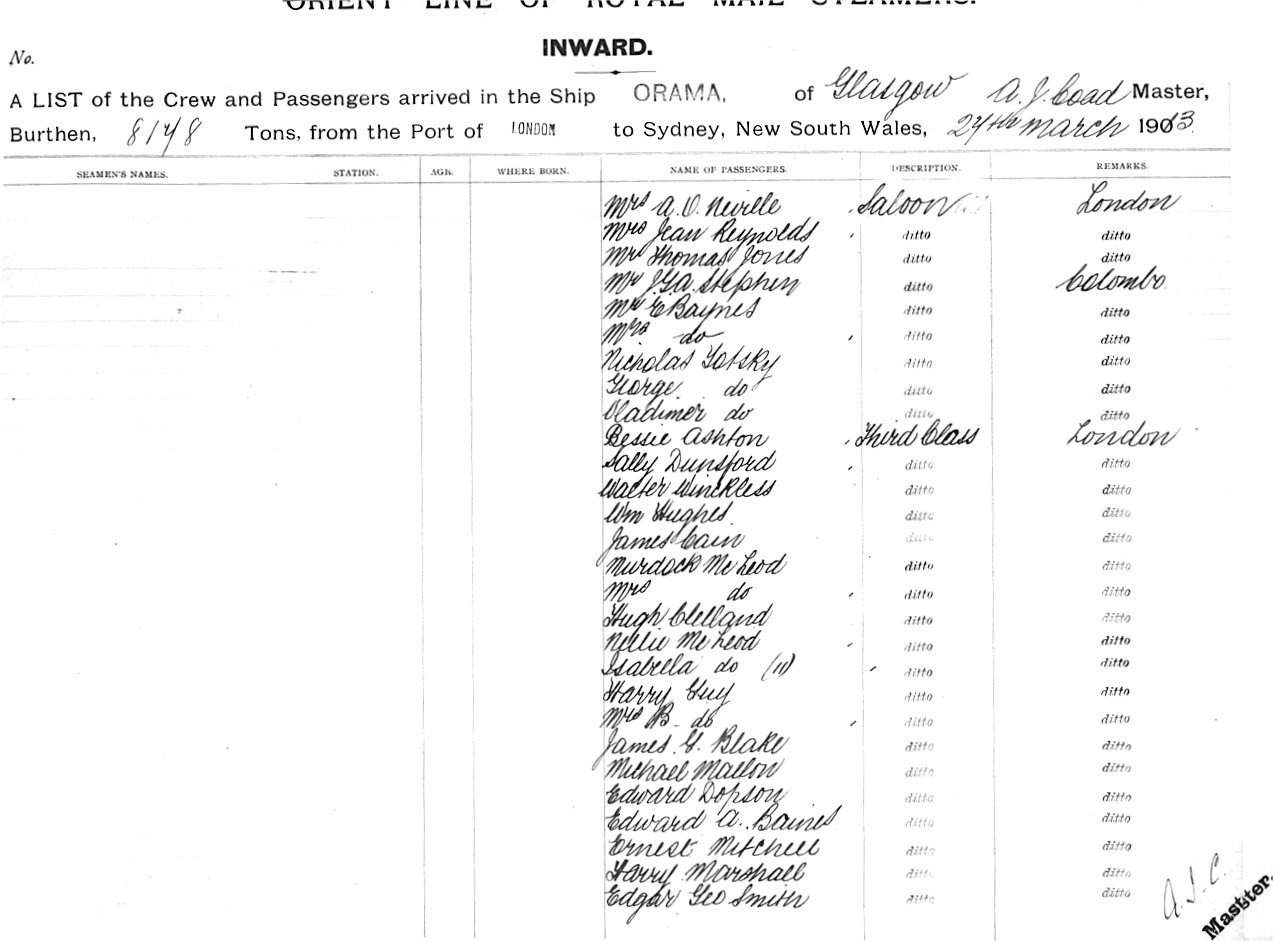 ORIENT LINE OF ROYAL MAIL STEAMERS.
INWARD.
No.
A LIST of the Crew and Passengers arrived in the Ship ORAMA, of Glasgow A. J. Coad Master,
Burthen, 8148 Tons, from the Port of LONDON to Sydney, New South Wales, 24th March 1903
SEAMEN'S NAMES. STATION. AGE. WHERE BORN. NAME OF PASSENGERS. DESCRIPTION. REMARKS.
Mrs A. O. Neville Saloon London
Mrs Jean Reynolds ditto ditto
Mr Thomas Jones ditto ditto
Mr J. G. A. Stephen ditto Colombo
Mr E Baynes ditto ditto
Mrs do ditto ditto
Nicholas ditto ditto
George do ditto ditto
Vladimer do ditto ditto
Bessie Ashton Third Class London
Sally Dunsford ditto ditto
Walter Winckless ditto ditto
Wm Hughes ditto ditto
James Cain ditto ditto
Murdock McLeod ditto ditto
Mrs do ditto ditto
Hugh Clelland ditto ditto
Nellie McLeod ditto ditto
Isabella do (11) ditto ditto
Harry Guy ditto ditto
Mrs B. do ditto ditto
James G. Blake ditto ditto
Michael Mallon ditto ditto
Edward Dopson ditto ditto
Edward A. Baines ditto ditto
Ernest Mitchell ditto ditto
Harry Marshall ditto ditto
Edgar Geo Smith ditto ditto
A. J. C.
Master.